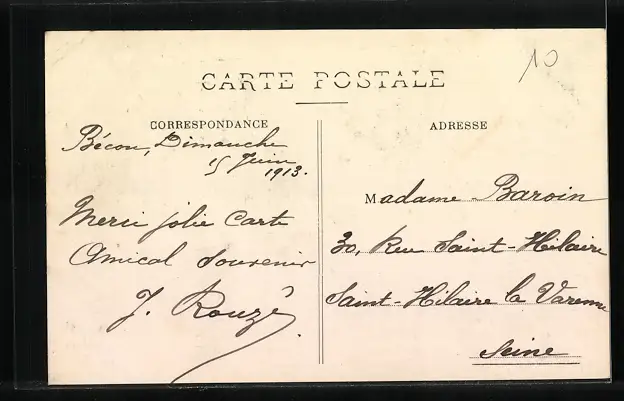 10
CARTE POSTALE
CORRESPONDANCE
Bécon, Dimanche
15 Juin
1913.
Merci jolie Carte
Amical Souvenir
J. Rouzé
ADRESSE
Madame Baroin
30, Rue Saint-Hilaire
Saint-Hilaire la Varenne
Seine